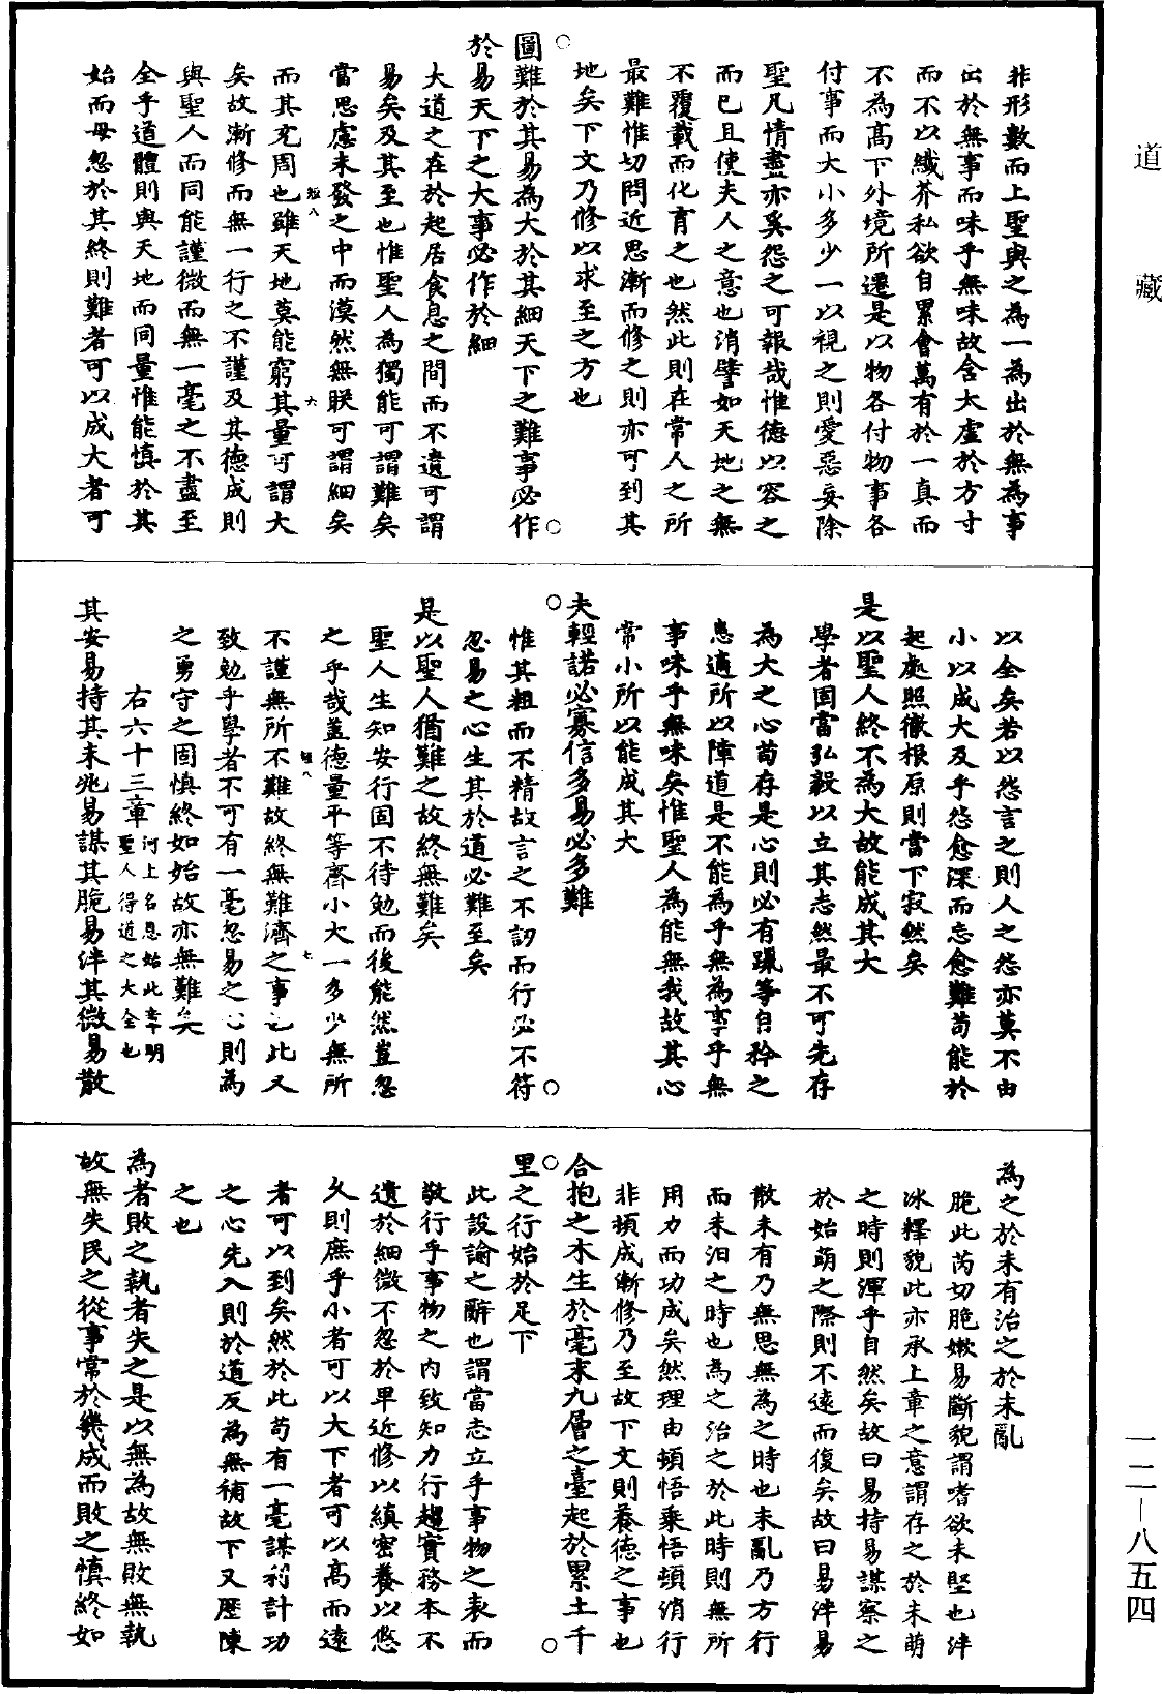 道藏
非形數而上聖與之為一為出於無為事
出於無事而味乎無味故含太虛於方寸
而不以纖芥私欲自累會萬有於一真而
不為高下外境所遷是以物各付物事各
付事而大小多少一以視之則愛惡妄除
聖凡情盡亦奚怨之可報哉惟德以容之
而已且使夫人之意也消譬如天地之無
不覆載而化育之也然此則在常人之所
最難惟切問近思漸而修之則亦可到其
地矣下文乃修以求至之方也
圖難於其易為大於其細天下之難事必作
於易天下之大事必作於細
大道之在於起居食息之間而不遺可謂
易矣及其至也惟聖人為獨能可謂難矣
當思慮未發之中而漠然無朕可謂細矣
而其充周也雖天地莫能窮其量可謂大
矣故漸修而無一行之不謹及其德成則
與聖人而同能謹微而無一毫之不盡至
全乎道體則與天地而同量惟能慎於其
始而毋忽於其終則難者可以成大者可
以全矣若以怨言之則人之怨亦莫不由
小以成大及乎怨愈深而忘愈難苟能於
起處照徹根原則當下寂然矣
是以聖人終不為大故能成其大
學者固當弘毅以立其志然最不可先存
為大之心苟存是心則必有躐等自矜之
患適所以障道是不能為乎無為事乎無
事味乎無味矣惟聖人為能無我故其心
常小所以能成其大
夫輕諾必寡信多易必多難
惟其粗而不精故言之不訒而行必不符
忽易之心生其於道必難至矣
是以聖人猶難之故終無難矣
聖人生知安行固不待勉而後能然豈忽
之乎哉蓋德量平等齊小大一多少無所
不謹無所不難故終無難濟之事也此又
致勉乎學者不可有一毫忽易之心則為
之勇守之固慎終如始故亦無難矣
右六十三章河上名恩始此章明
聖人得道之大全也
其安易持其未兆易謀其脆易泮其微易散
為之於未有治之於未亂
脆此芮切脆嫩易斷貌謂嗜欲未堅也泮
冰釋貌此亦承上章之意謂存之於未萌
之時則渾乎自然矣故曰易持易謀察之
於始萌之際則不遠而復矣故曰易泮易
散未有乃無思無為之時也未亂乃方行
而未汩之時也為之治之於此時則無所
用力而功成矣然理由頓悟乘悟頓消行
非頓成漸修乃至故下文則養德之事也
合抱之木生於毫末九層之臺起於累土千
里之行始於足下
此設諭之辭也謂當志立乎事物之表而
敬行乎事物之內致知力行趨實務本不
遺於細微不忽於卑近修以縝密養以悠
久則庶乎小者可以大下者可以高而遠
者可以到矣然於此苟有一毫謀利計功
之心先入則於道反為無補故下又歷陳
之也
為者敗之執者失之是以無為故無敗無執
故無失民之從事常於幾成而敗之慎終如
一二—八五四